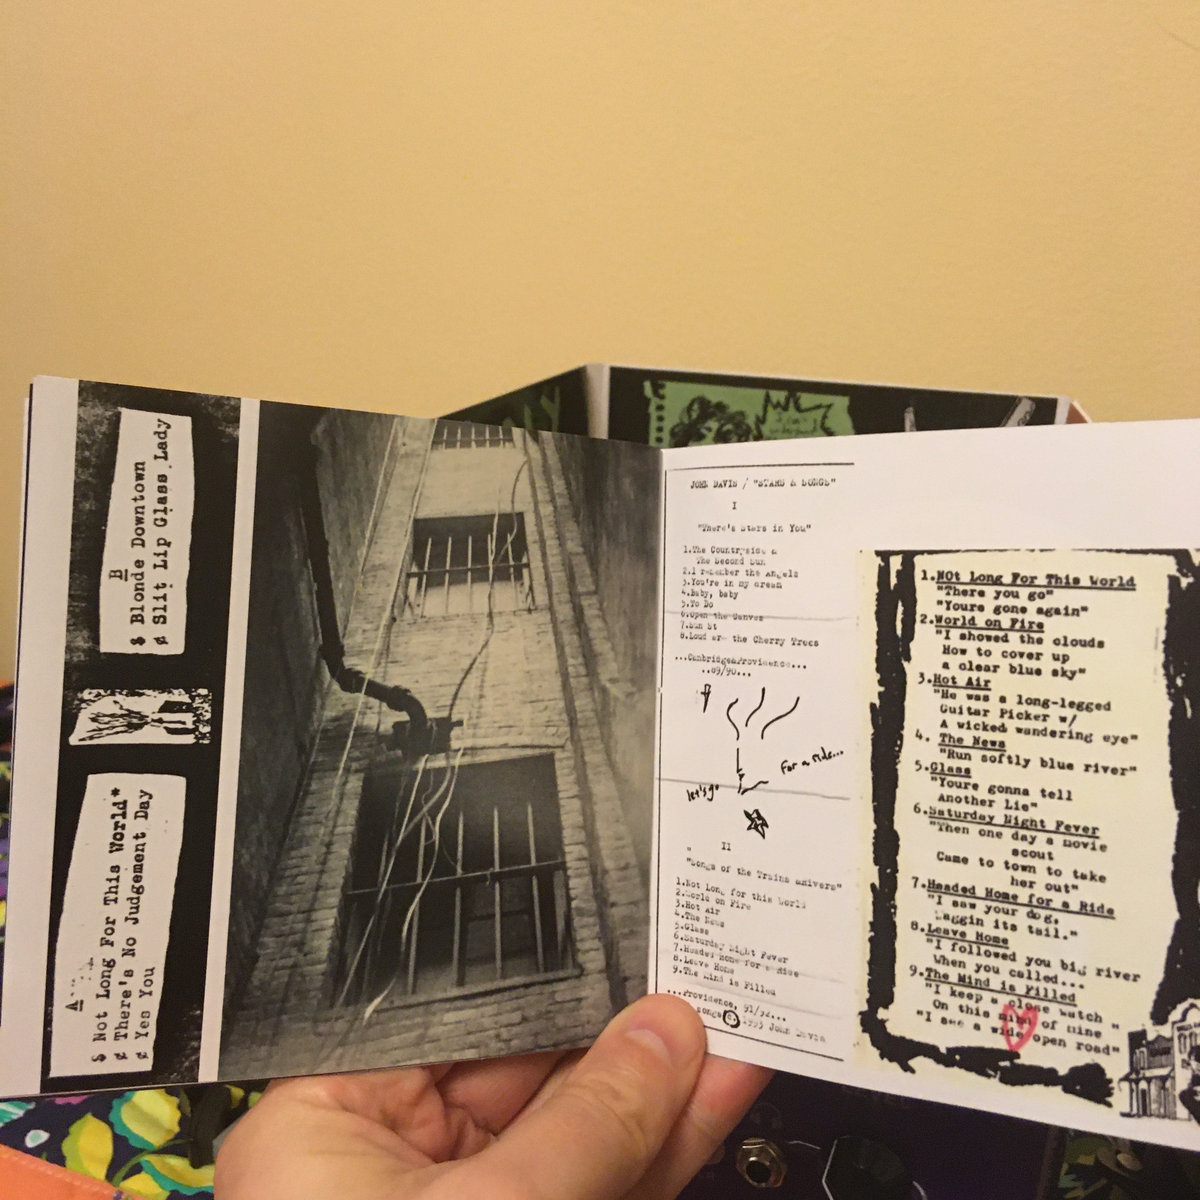 B
$ Blonde Downtown
¢ Slit Lip Glass Lady
A
$ Not Long For This World*
¢ There's No Judgement Day
¢ Yes You
JOHN DAVIS / "STARS & SONGS"
I
"There's Stars in You"
1.The Countryside &
The Second Sun
2.I remember the Angels
3.You're in my dream
4.Baby, baby
5.To Do
6.Open the Canvas
7.Sun St
8.Loud are the Cherry Trees
...Cambridge&Providence...
..89/90...
let's go
for a ride...
II
"Songs of the Trains &Rivers"
1.Not Long for this World
2.World on Fire
3.Hot Air
4.The News
5.Glass
6.Saturday Night Fever
7.Headed Home for a Ride
8.Leave Home
9.The Mind is Filled
...Providence, 91/92...
songs © 1993 John Davis
1.NOt Long For This World
"There you go"
"Youre gone again"
2.World on Fire
"I showed the clouds
How to cover up
a clear blue sky"
3.Hot Air
"He was a long-legged
Guitar Picker w/
A wicked wandering eye"
4. The News
"Run softly blue river"
5.Glass
"Youre gonna tell
Another Lie"
6.Saturday Night Fever
"Then one day a movie
scout
Came to town to take
her out"
7.Headed Home for a Ride
"I saw your dog,
Waggin its tail."
8.Leave Home
"I followed you big river
When you called...
9.The Mind is Filled
"I keep a close watch "
On this mind of mine
"I see a wide open road"